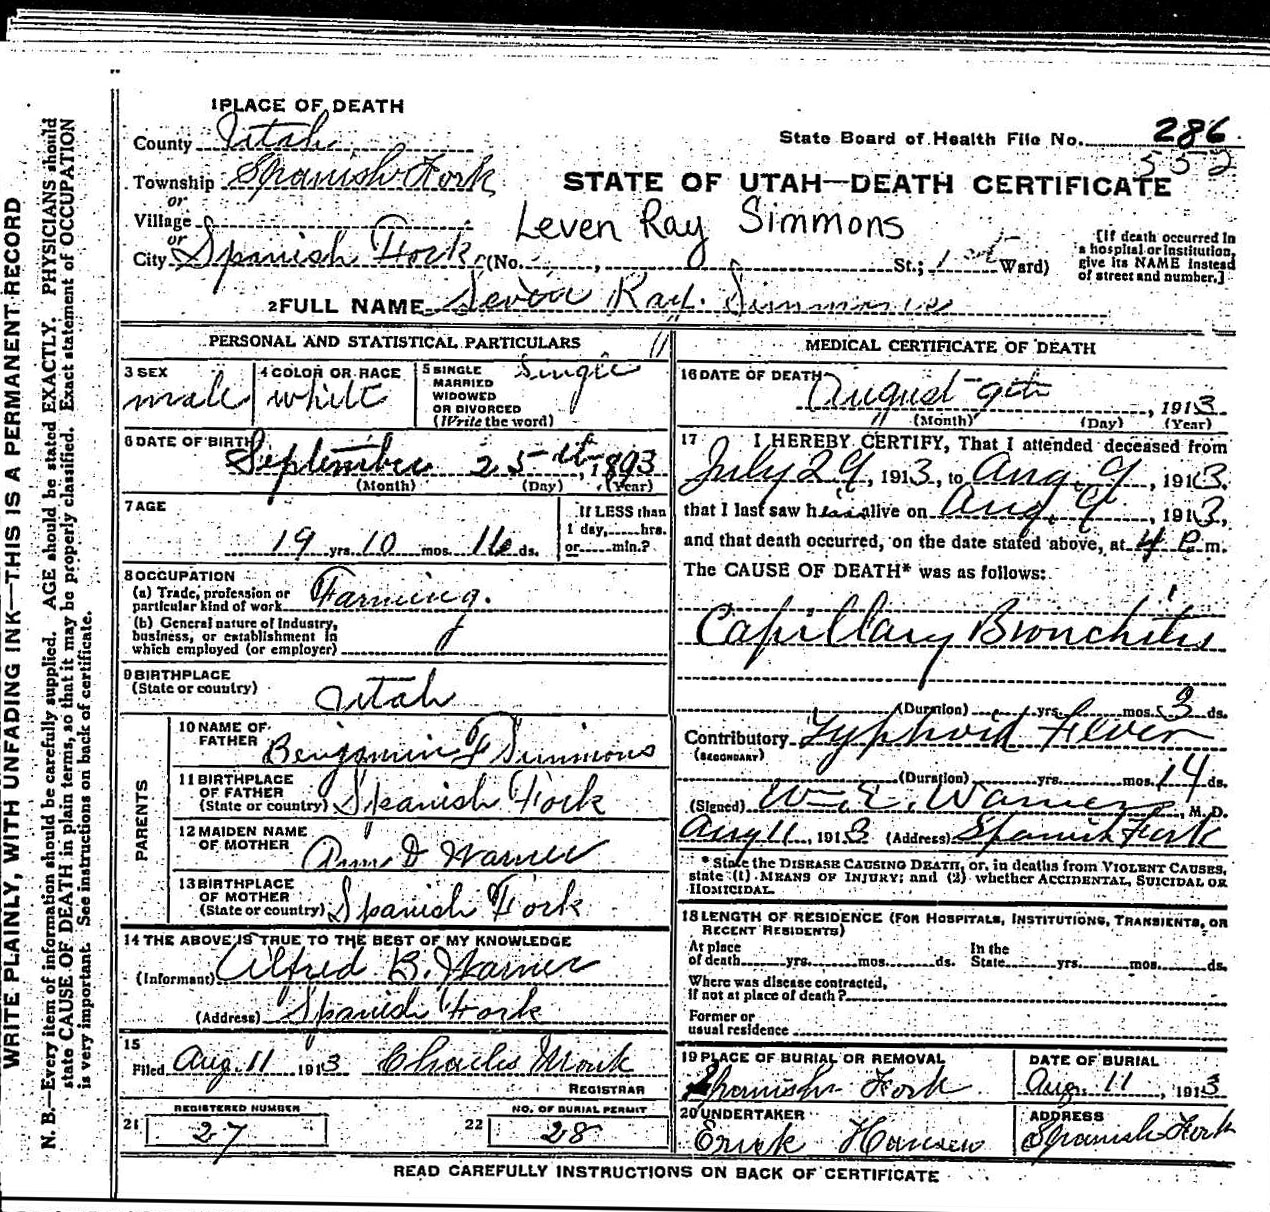 1 PLACE OF DEATH
County Utah
State Board of Health File No. 286
552
Township Spanish Fork
or
STATE OF UTAH—DEATH CERTIFICATE
Village
or
Leven Ray Simmons
City Spanish Fork (No. , St.; 1st Ward)
[If death occurred in
a hospital or institution,
give its NAME instead
of street and number.]
2 FULL NAME Leven Ray Simmons
PERSONAL AND STATISTICAL PARTICULARS
3 SEX
male
4 COLOR OR RACE
white
5 SINGLE
MARRIED
WIDOWED
OR DIVORCED
(Write the word)
Single
6 DATE OF BIRTH
September 25th, 1893
(Month) (Day) (Year)
7 AGE
19 yrs. 10 mos. 16 ds.
If LESS than
1 day, hrs.
or min.?
8 OCCUPATION
(a) Trade, profession or
particular kind of work Farming.
(b) General nature of Industry,
business, or establishment in
which employed (or employer)
9 BIRTHPLACE
(State or country) Utah
PARENTS
10 NAME OF
FATHER Benjamin F Simmons
11 BIRTHPLACE
OF FATHER
(State or country) Spanish Fork
12 MAIDEN NAME
OF MOTHER Ann D Warner
13 BIRTHPLACE
OF MOTHER
(State or country) Spanish Fork
14 THE ABOVE IS TRUE TO THE BEST OF MY KNOWLEDGE
(Informant) Alfred B. Warner
(Address) Spanish Fork
15
Filed Aug. 11 1913 Charles Monk
REGISTRAR
21 REGISTERED NUMBER
27
22 NO. OF BURIAL PERMIT
28
MEDICAL CERTIFICATE OF DEATH
16 DATE OF DEATH
August 9th, 1913
(Month) (Day) (Year)
17 I HEREBY CERTIFY, That I attended deceased from
July 29, 1913, to Aug. 9, 1913.
that I last saw him alive on Aug. 9, 1913,
and that death occurred, on the date stated above, at 4 P m.
The CAUSE OF DEATH* was as follows:
Capillary Bronchitis
(Duration) yrs. mos. 3 ds.
Contributory Typhoid Fever
(SECONDARY)
(Duration) yrs. mos. 14 ds.
(Signed) W. E. Warner, M. D.
Aug 11, 1913 (Address) Spanish Fork
* State the DISEASE CAUSING DEATH, or, in deaths from VIOLENT CAUSES,
state (1) MEANS OF INJURY; and (2) whether ACCIDENTAL, SUICIDAL OR
HOMICIDAL.
18 LENGTH OF RESIDENCE (FOR HOSPITALS, INSTITUTIONS, TRANSIENTS, OR
RECENT RESIDENTS)
At place
of death yrs. mos. ds.
In the
State yrs. mos. ds.
Where was disease contracted,
if not at place of death?
Former or
usual residence
19 PLACE OF BURIAL OR REMOVAL
Spanish Fork
DATE OF BURIAL
Aug. 11, 1913
20 UNDERTAKER
Erick Hansen
ADDRESS
Spanish Fork
READ CAREFULLY INSTRUCTIONS ON BACK OF CERTIFICATE
WRITE PLAINLY, WITH UNFADING INK—THIS IS A PERMANENT RECORD
N. B.—Every item of information should be carefully supplied. AGE should be stated EXACTLY. PHYSICIANS should
state CAUSE OF DEATH in plain terms, so that it may be properly classified. Exact statement of OCCUPATION
is very important. See instructions on back of certificate.